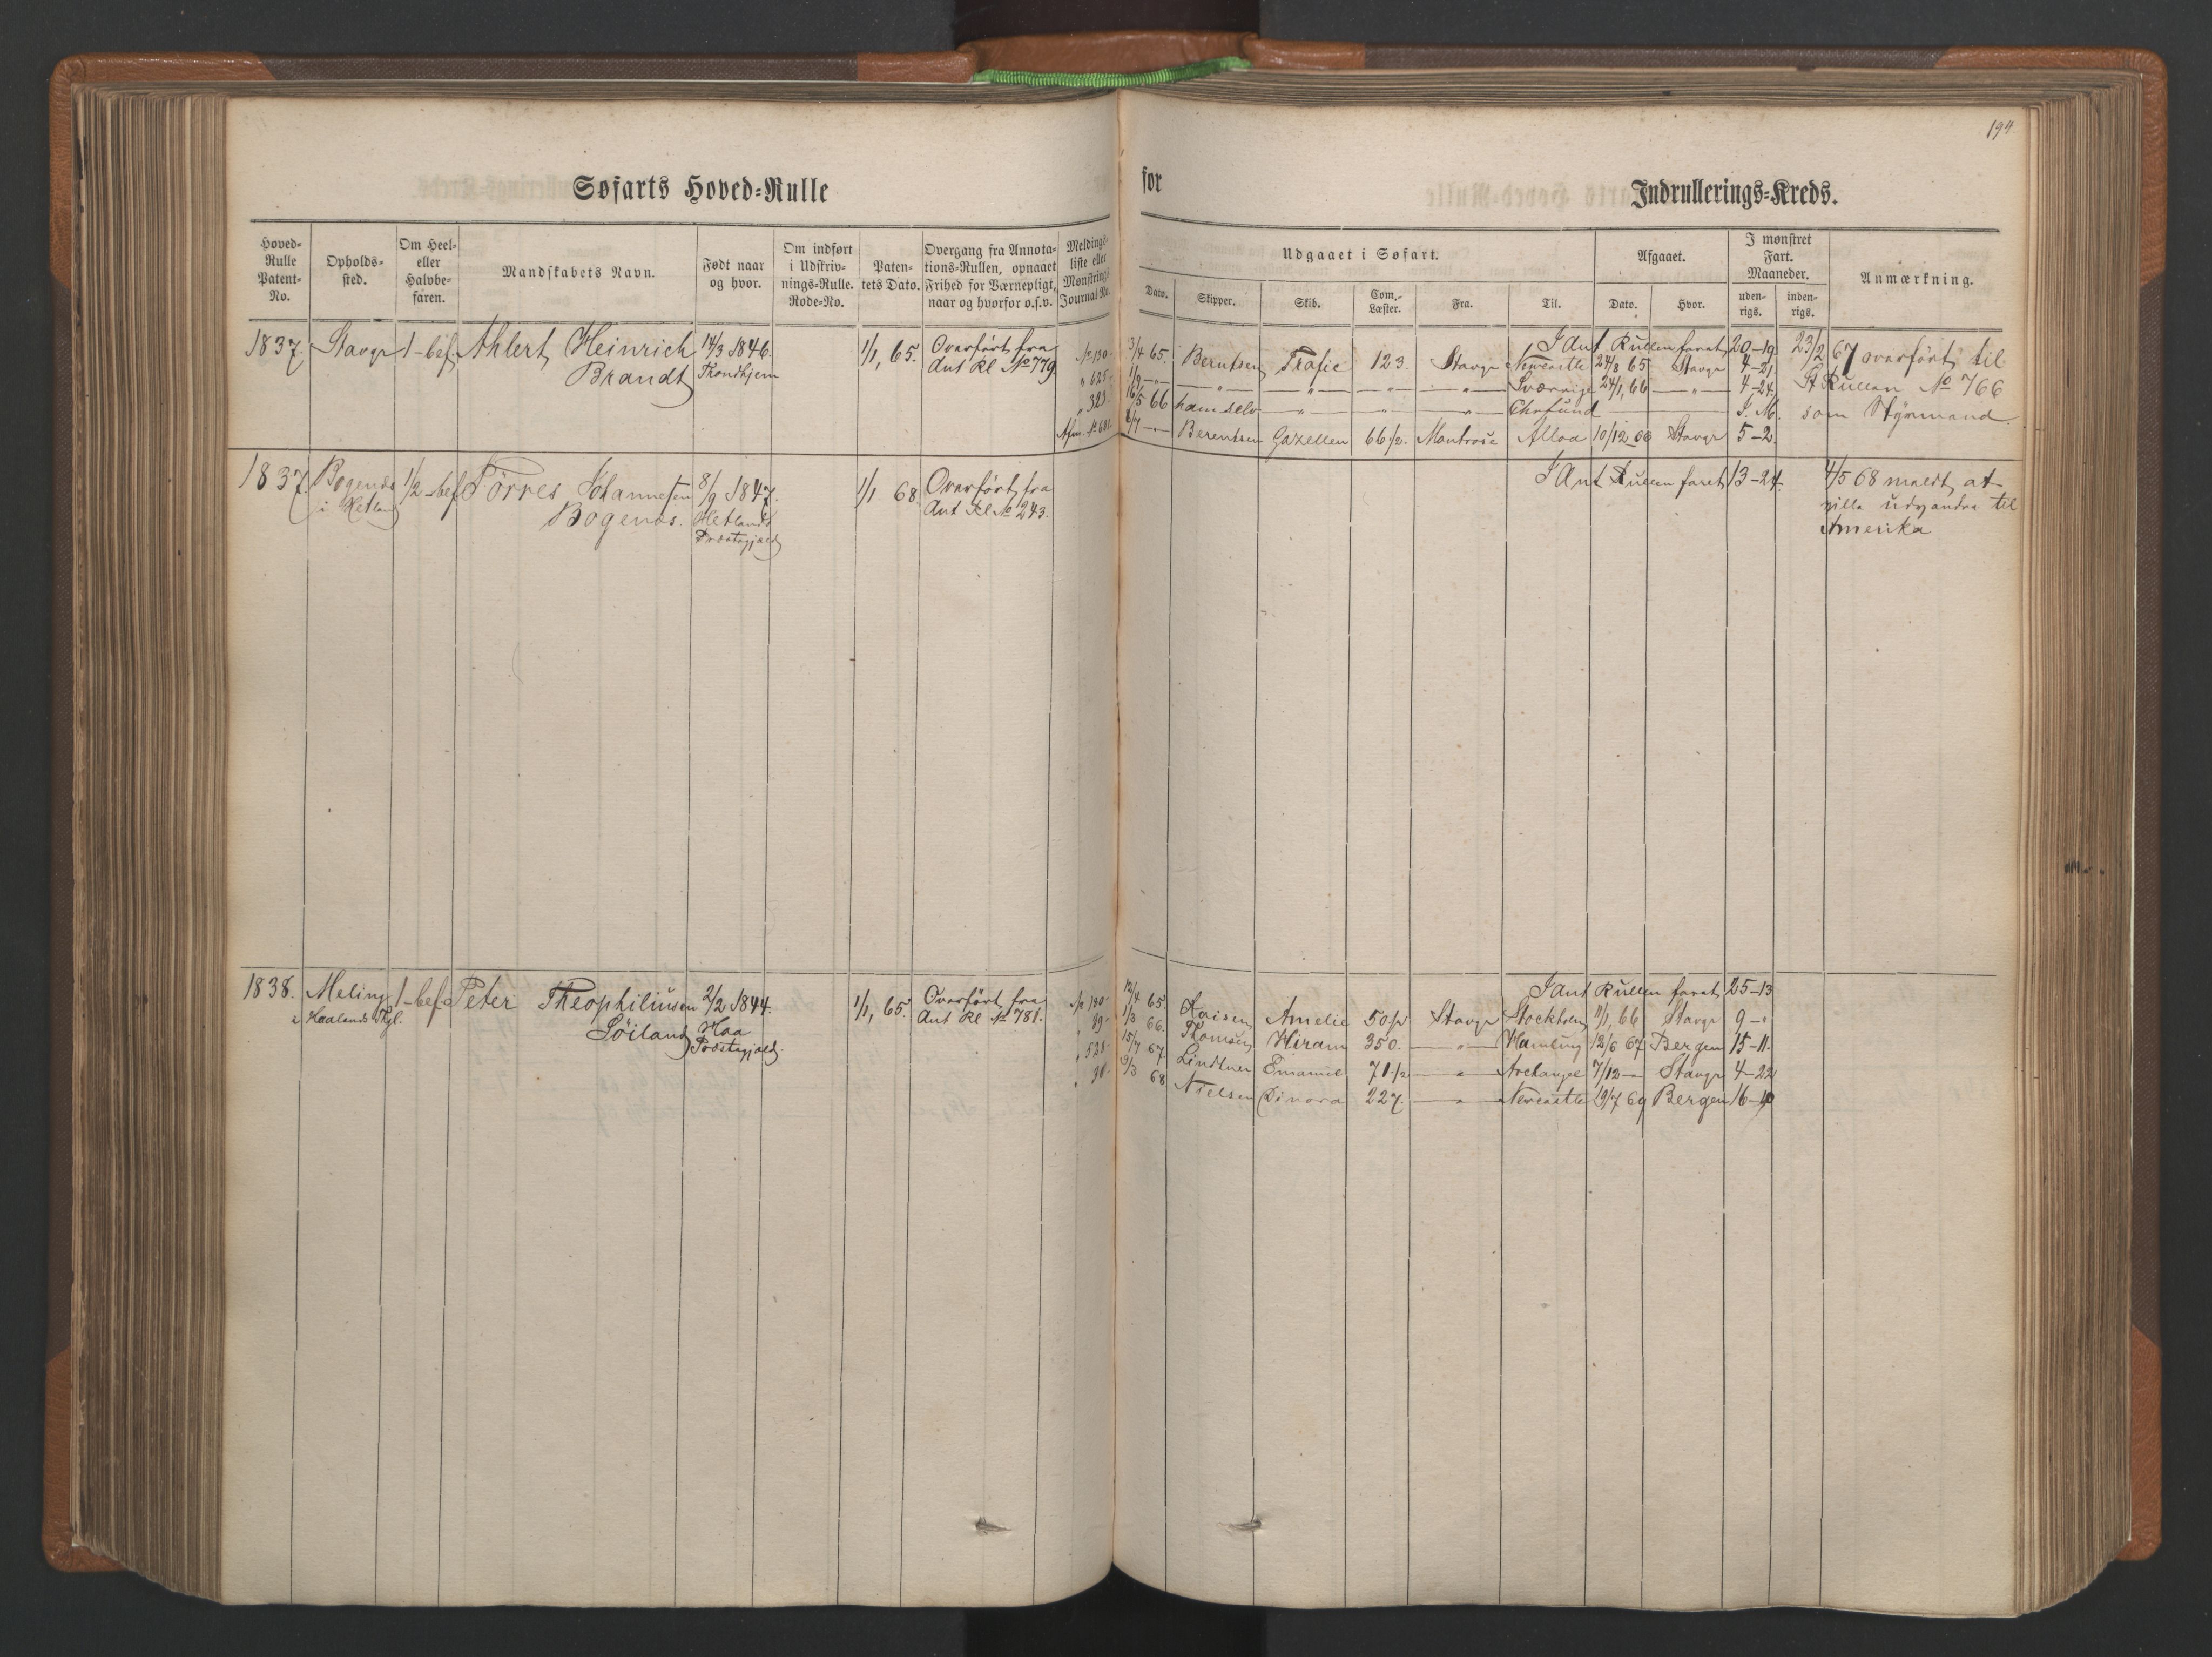 194
Søfarts Hoved-Rulle
for
Indrullerings-Kreds.
Hoved-Rulle Patent-No.
Opholds-sted.
Om Heel- eller Halvbe-faren.
Mandskabets Navn.
Født naar og hvor.
Om indført i Udskriv-nings-Rulle. Rode-No.
Paten-tets Dato.
Overgang fra Annota-tions-Rullen, opnaaet Frihed for Værnepligt, naar og hvorfor o.s.v.
Meldings-liste eller Mønstrings Journal No.
Udgaaet i Søfart.
Dato.
Skipper.
Skib.
Com.-Læster.
Fra.
Til.
Afgaaet.
Dato.
Hvor.
I mønstret Fart. Maaneder.
uden-rigs.
inden-rigs.
Anmærkning.
1837. Stavgr 1-bef Ahlert Heinrich 14/3 1846. 1/1, 65. Overført fra
Brandt Trondhjem Ant Rl No 779
I Ant Rullen faret 20-19 23/2 67 overført til
No 130 3/4 65. Berntsen Trafic 123. Stavgr Newcastle 24/8 65 Stavgr 4-21
" 625 1/9 -"- -"- -"- " -"- Sverrige 24/1, 66 -"- 4-24. St Rullen No 766
" 323 16/5 66 ham selv -"- " -"- Chrsund I. M. som Styrmand
Afm. No 681. -"- Berentsen Gazellen 66 1/2. Montrose Alloa 10/12 66 Stavgr 5-2.
1837. Bogenæs 1/2-bef Törres Johannesen 8/9 1847. 1/1 68. Overført fra
i Hetland Bogenæs. Hetlands Ant Rl No 243.
Præstegjæld
I Ant Rullen faret 13-24. 4/5 68 meldt at
ville udvandre til
Amerika
1838. Meling 1-bef Peter Theophiliusen 2/2 1844. 1/1, 65. Overført fra
i Haalands Pgl. Söiland Haa Ant Rl No 781.
Præstegjæld.
I ant Rullen faret 25-13
No 190 12/4 65. Amelie 50 1/2 Stavgr Stockholm 11/1, 66 Stavgr 9-"
" 89 1/3 66. Thomsen Hiram 350. -"- 12/6 67 Bergen 15-11.
" 521 15/7 67. Lindtner Emanuel 71 1/2 -"- Archangel 7/12 -"- Stavgr 4-22
" 31 9/3 68 Nielsen Dinora 227. -"- Newcastle 19/7 69 Bergen 16-10